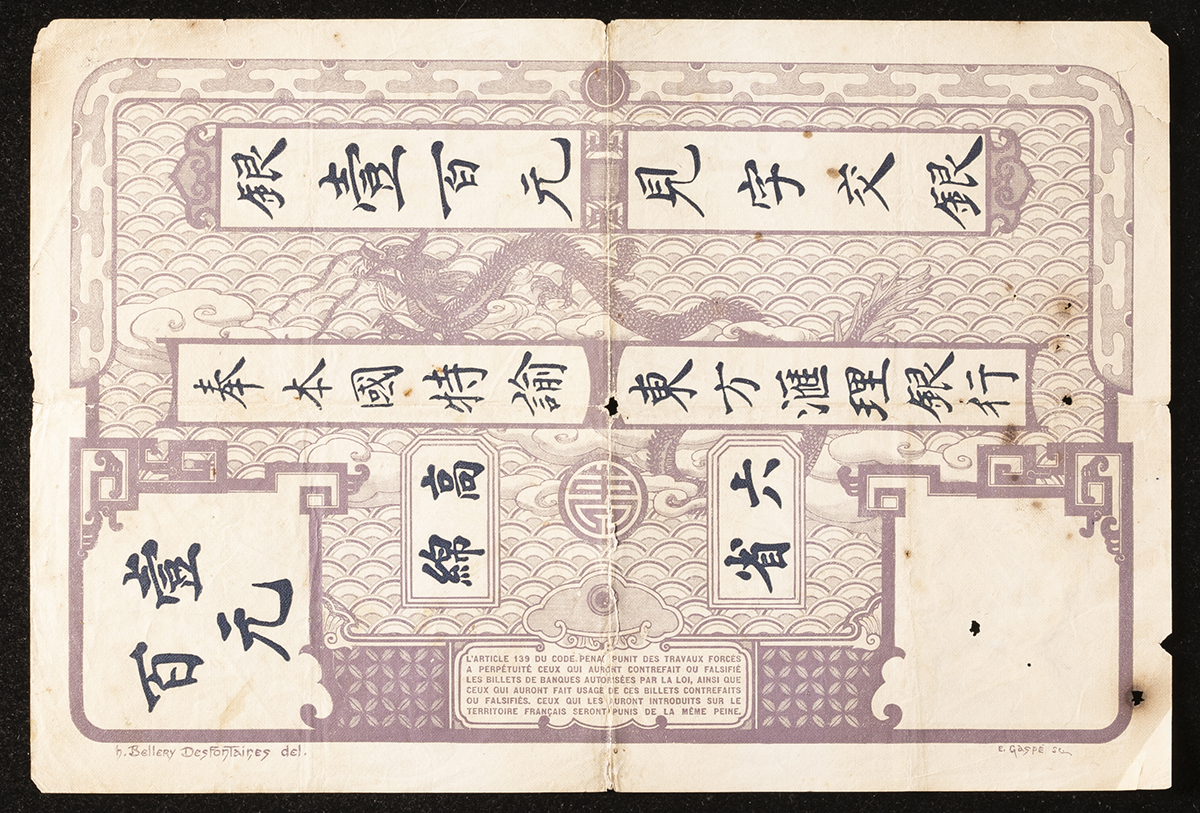 銀壹百元
見字交銀
奉本國特諭
東方匯理銀行
高綿
六省
壹百元
L'ARTICLE 139 DU CODE PENAL PUNIT DES TRAVAUX FORCÉS
A PERPÉTUITÉ CEUX QUI AURONT CONTREFAIT OU FALSIFIÉ
LES BILLETS DE BANQUES AUTORISÉES PAR LA LOI, AINSI QUE
CEUX QUI AURONT FAIT USAGE DE CES BILLETS CONTREFAITS
OU FALSIFIÉS. CEUX QUI LES AURONT INTRODUITS SUR LE
TERRITOIRE FRANÇAIS SERONT PUNIS DE LA MÊME PEINE.
H. BELLERY DESFONTAINES del.
E. GASPÉ sc